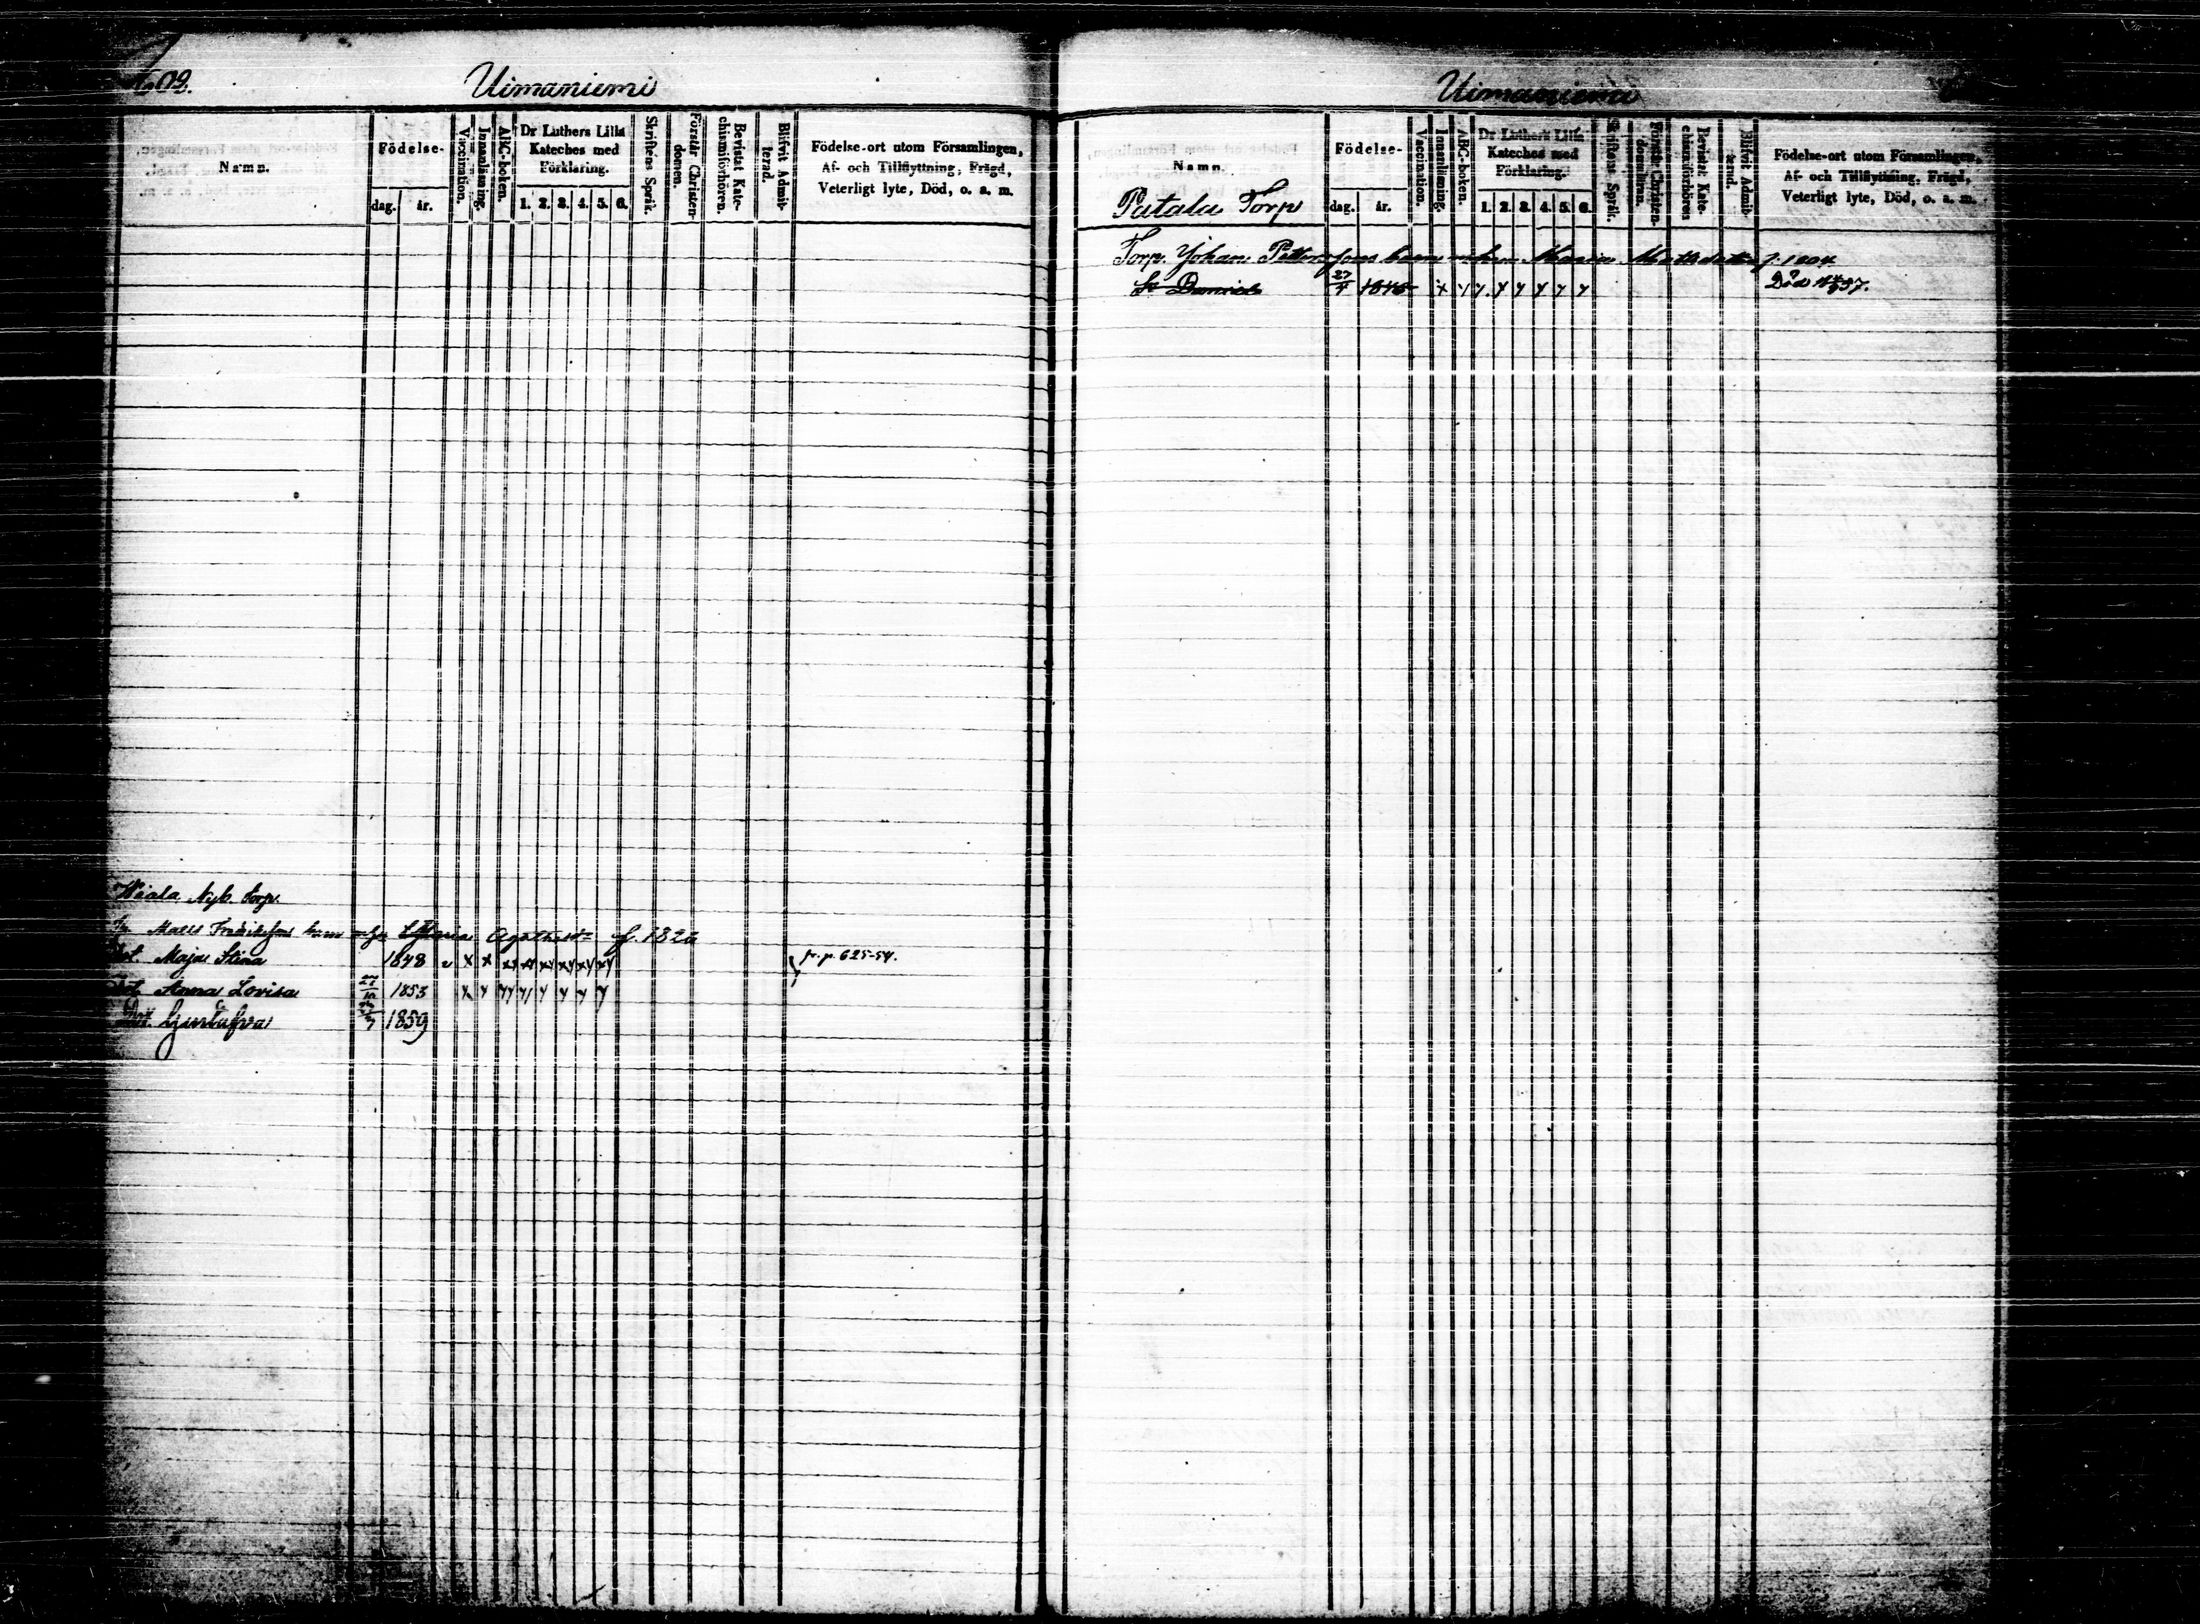 609.
Uimaniemi
Namn.
Födelse-
dag. år.
Vaccination.
Innanläsning.
ABC-boken.
Dr Luthers Lilla
Kateches med
Förklaring.
1. 2. 3. 4. 5. 6.
Skriftens Språk.
Förstår Christen-
domen.
Bevistat Kate-
chismiförhören.
Blifvit Admit-
terad.
Födelse-ort utom Församlingen,
Af- och Tillflyttning, Frägd,
Veterligt lyte, Död, o. a. m.
Wiala Nyb. torp.
Matts Fredrikssons barn m. h. Maria f. 182
Maja Stina 1848 x x xy xy xy xy xy xy fr. p. 625-54.
Anna Lovisa 27 1853 x y yy y y y y y
Dot. Gustafva 1859
Uimaniemi
Namn.
Patala Torp
Födelse-
dag. år.
Vaccination.
Innanläsning.
ABC-boken.
Dr Luthers Lilla
Kateches med
Förklaring.
1. 2. 3. 4. 5. 6.
Skriftens Språk.
Förstår Christen-
domen.
Bevistat Kate-
chismiförhören
Blifvit Admit-
terad.
Födelse-ort utom Församlingen,
Af- och Tillflyttning, Frägd,
Veterligt lyte, Död, o. a. m.
Torp. Johan Petterssons barn m. h. Maria f. 1804
So Daniel 27/4 x y y y y y y y Död 57.